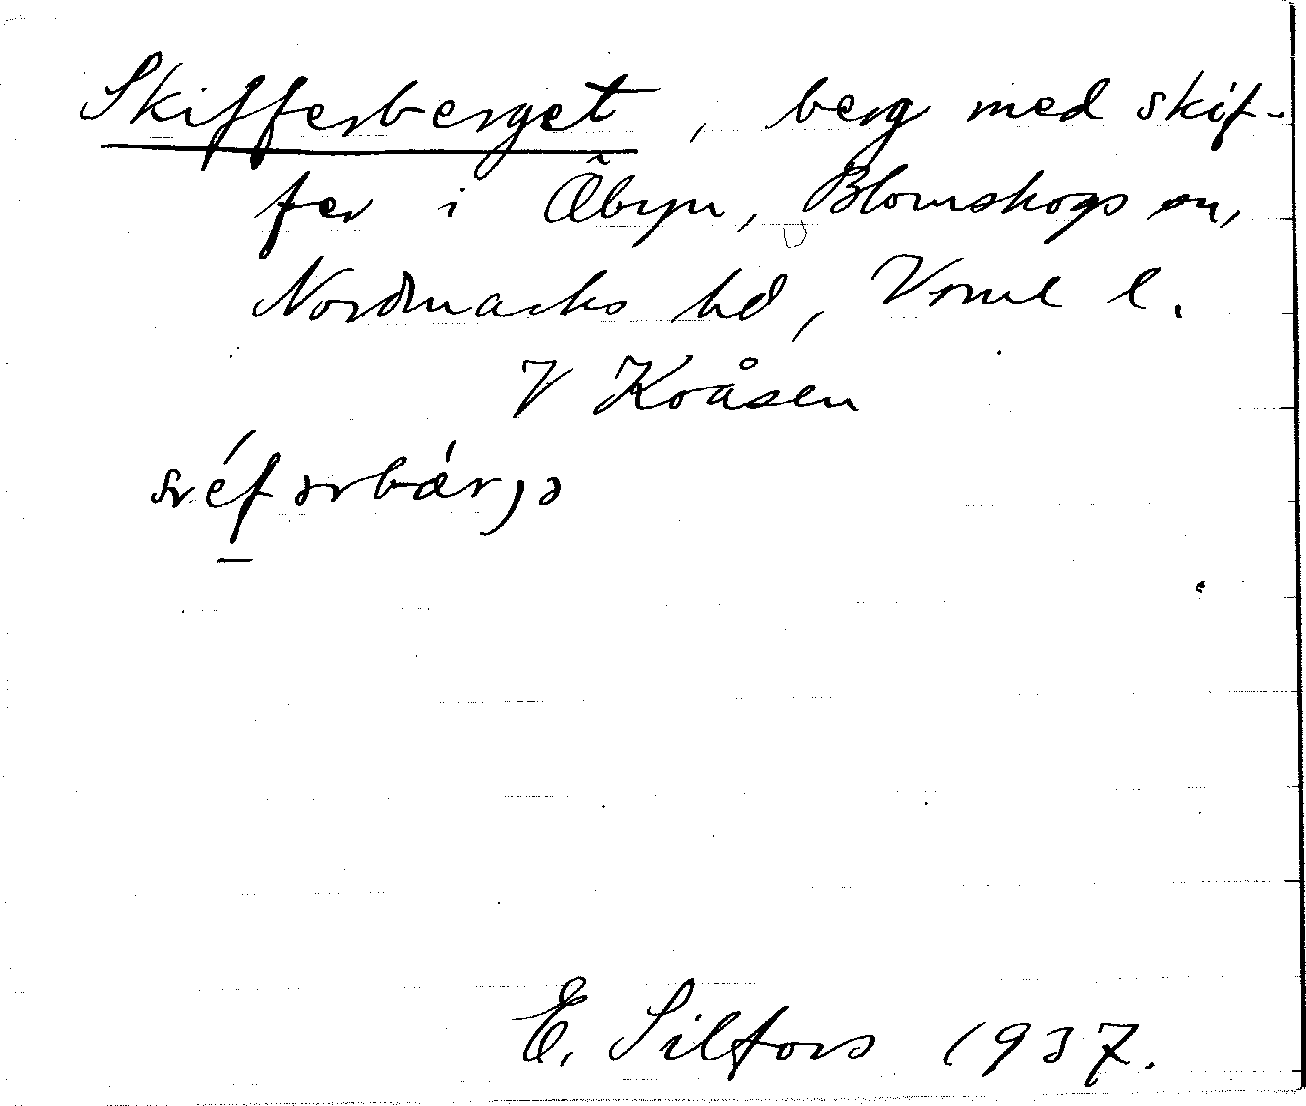 Skifferberget, berg med skif-
fer i Õbyn, Blomskogs sn,
Nordmarks hd, Vrml l.
V Koåsen
E. Silfors 1937.